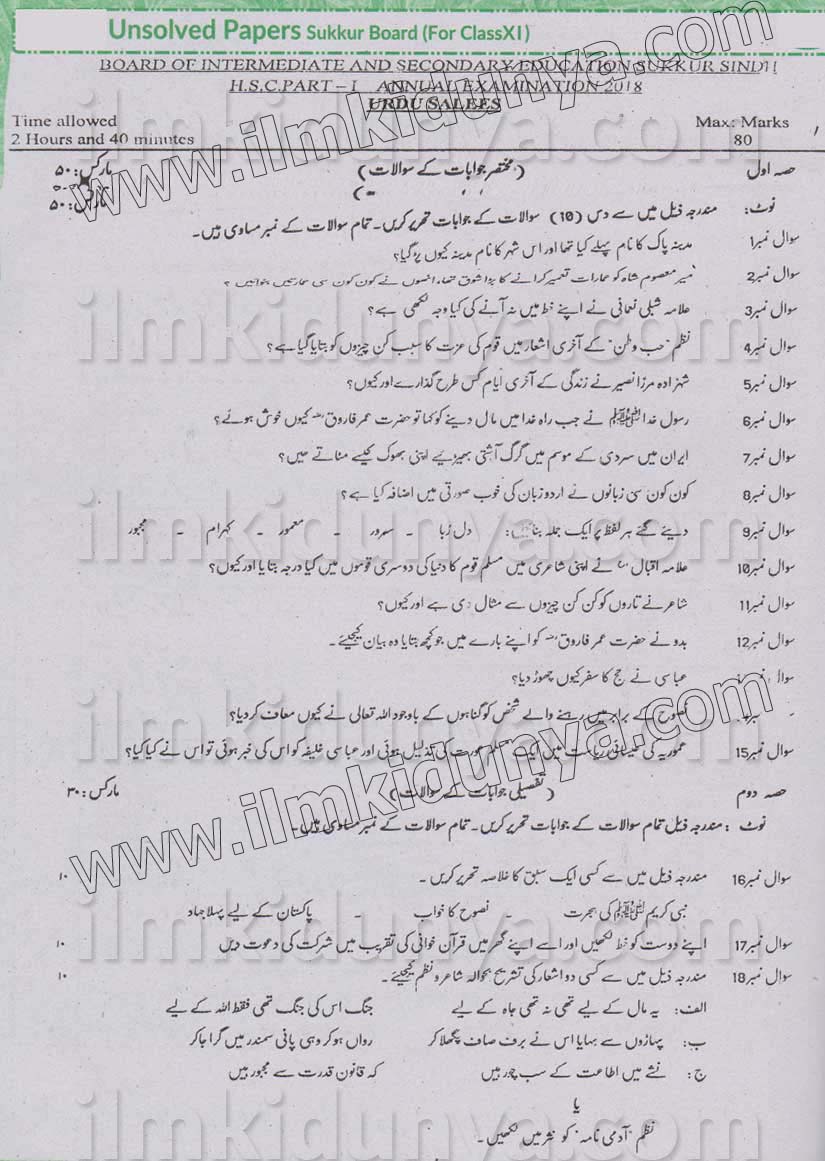 Unsolved Papers Sukkur Board (For ClassXI)
BOARD OF INTERMEDIATE AND SECONDARY EDUCATION SUKKUR SINDH
H.S.C.PART – I ANNUAL EXAMINATION 2018
URDU SALEES
Time allowed Max: Marks
2 Hours and 40 minutes 80
حصہ اول (مختصر جوابات کے سوالات) مارکس: ۵۰
مارکس: ۵۰
نوٹ: مندرجہ ذیل میں سے دس (10) سوالات کے جوابات تحریر کریں۔ تمام سوالات کے نمبر مساوی ہیں۔
سوال نمبر1 مدینہ پاک کا نام پہلے کیا تھا اور اس شہر کا نام مدینہ کیوں پڑ گیا؟
سوال نمبر2 میر معصوم شاہ کو عمارات تعمیر کرانے کا بڑا شوق تھا، انہوں نے کون کون سی عمارتیں بنوائیں؟
سوال نمبر3 علامہ شبلی نعمانی نے اپنے خط میں نہ آنے کی کیا وجہ لکھی ہے؟
سوال نمبر4 نظم "حب وطن" کے آخری اشعار میں قوم کی عزت کا سبب کن چیزوں کو بتایا گیا ہے؟
سوال نمبر5 شہزادہ مرزا نصیر نے زندگی کے آخری ایام کس طرح گذارے اور کیوں؟
سوال نمبر6 رسول خدا ﷺ نے جب راہ خدا میں مال دینے کو کہا تو حضرت عمر فاروق رضہ کیوں خوش ہوئے؟
سوال نمبر7 ایران میں سردی کے موسم میں گرگ آشتی بھیڑیے اپنی بھوک کیسے مٹاتے ہیں؟
سوال نمبر8 کون کون سی زبانوں نے اردو زبان کی خوب صورتی میں اضافہ کیا ہے؟
سوال نمبر9 دیئے گئے ہر لفظ پر ایک جملہ بنائیں: دل رُبا - سرور - معمور - کہرام - مجبور
سوال نمبر10 علامہ اقبال نے اپنی شاعری میں مسلم قوم کا دنیا کی دوسری قوموں میں کیا درجہ بتایا اور کیوں؟
سوال نمبر11 شاعر نے تاروں کو کن کن چیزوں سے مثال دی ہے اور کیوں؟
سوال نمبر12 بدو نے حضرت عمر فاروق رضہ کو اپنے بارے میں جو کچھ بتایا وہ بیان کیجیئے۔
عباسی نے حج کا سفر کیوں چھوڑ دیا؟
نصوح کے برابر میں رہنے والے شخص کو گناہوں کے باوجود اللہ تعالی نے کیوں معاف کر دیا؟
سوال نمبر15 عموریہ کی عیسائی ریاست میں ایک عورت کی تذلیل ہوئی اور عباسی خلیفہ کو اس کی خبر ہوئی تو اس نے کیا کیا؟
حصہ دوم (تفصیلی جوابات کے سوالات) مارکس: ۳۰
نوٹ: مندرجہ ذیل تمام سوالات کے جوابات تحریر کریں۔ تمام سوالات کے نمبر مساوی ہیں۔
سوال نمبر16 مندرجہ ذیل میں سے کسی ایک سبق کا خلاصہ تحریر کریں۔ ۱۰
نبی کریم ﷺ کی ہجرت - نصوح کا خواب - پاکستان کے لیے پہلا جہاد
سوال نمبر17 اپنے دوست کو خط لکھیں اور اسے اپنے گھر میں قرآن خوانی کی تقریب میں شرکت کی دعوت دیں ۱۰
سوال نمبر18 مندرجہ ذیل میں سے کسی دو اشعار کی تشریح بحوالہ شاعر و نظم کیجیئے۔ ۱۰
الف: یہ مال کے لیے تھی نہ تھی جاہ کے لیے جنگ اس کی جنگ تھی فقط اللہ کے لیے
ب: پہاڑوں سے بہایا اس نے برف صاف پگھلا کر رواں ہو کر وہی پانی سمندر میں گرا جا کر
ج: نشے میں اطاعت کے سب چور ہیں کہ قانون قدرت سے مجبور ہیں
یا
نظم "آدمی نامہ" کو نثر میں لکھیں۔
www.ilmkidunya.com
www.ilmkidunya.com
ilmkidunya.com
ilmkidunya.com
ilmkidunya.com
ilmkidunya.com
ilmkidunya.com
ilmkidunya.com